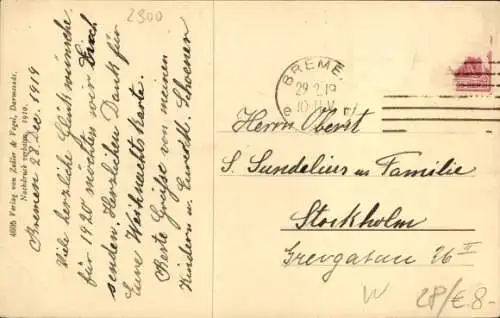 2300
4605 Verlag von Zedler & Vogel, Darmstadt.
Nachdruck verboten. 1910.
Bremen 28 Dec. 1919
Viele herzliche Glückwünsche
für 1920 möchten wir Euch
senden. Herzlichen Dank für
Eure Weihnachtskarte.
Beste Grüße von meinen
Kindern u. Eurer
BREME
10-11 V
Herrn Oberst
S. Sundelius u Familie
Stockholm
Grevgatan 26 II
W
28/€.8-